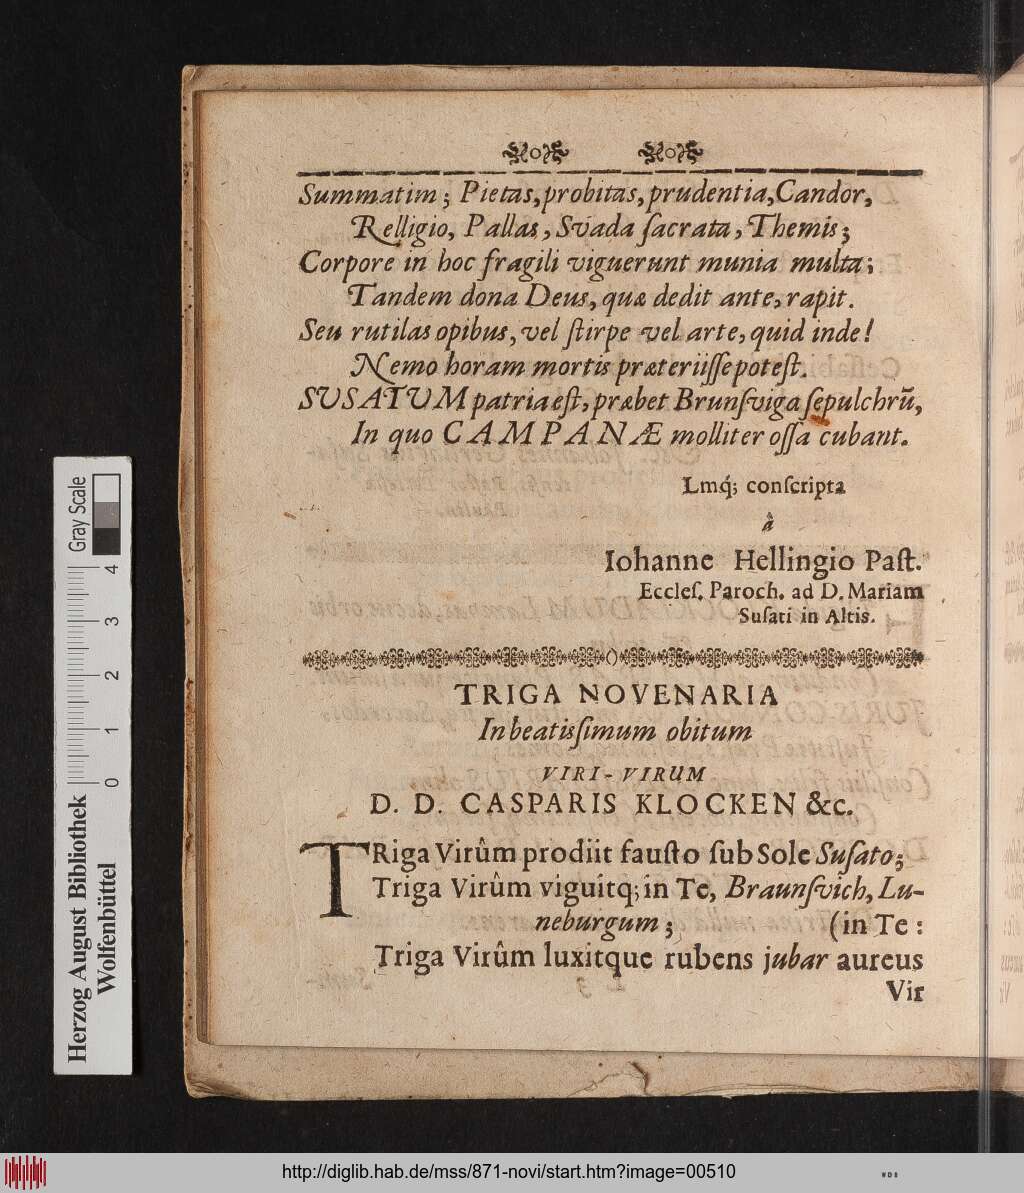 Summatim; Pietas, probitas, prudentia, Candor,
Relligio, Pallas, Svada ſacrata, Themis;
Corpore in hoc fragili viguerunt munia multa;
Tandem dona Deus, quæ dedit ante, rapit.
Seu rutilas opibus, vel ſtirpe vel arte, quid inde!
Nemo horam mortis præteriiſſe poteſt.
SUSATUM patria eſt, præbet Brunſviga ſepulchrũ,
In quo CAMPANÆ molliter oſſa cubant.
Lmq́; conſcripta
â
Iohanne Hellingio Paſt.
Eccleſ. Paroch. ad D. Mariam
Suſati in Altis.
TRIGA NOVENARIA
In beatisſimum obitum
VIRI-VIRUM
D. D. CASPARIS KLOCKEN &c.
TRiga Virûm prodiit fauſto ſub Sole Suſato;
Triga Virûm viguitq; in Te, Braunſvich, Lu-
neburgum; (in Te:
Triga Virûm luxitque rubens jubar aureus
Vir
Gray Scale
0 1 2 3 4
Herzog August Bibliothek
Wolfenbüttel
http://diglib.hab.de/mss/871-novi/start.htm?image=00510